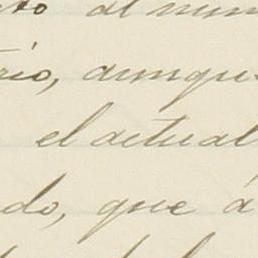 to al num
rio, aunque
el actual
do, que á